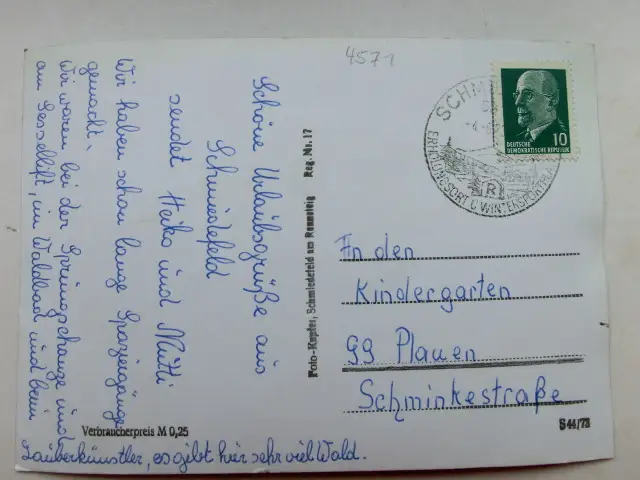 4571
Schöne Urlaubsgrüße aus
Schmiedefeld
sendet Heiko und Mutti
Wir haben schon lange Spaziergänge
gemacht.
Wir waren bei der Sprungschanze und
am Sessellift, im Waldbad und beim
Zauberkünstler, es gibt hier sehr viel Wald.
Verbraucherpreis M 0,25
Foto-Kupfer, Schmiedefeld am Rennsteig Reg. Nr. 17
SCHM
ERHOLUNGSORT U. WINTERSPORTPLA
R
DEUTSCHE
DEMOKRATISCHE REPUBLIK
10
An den
Kindergarten
99 Plauen
Schminkestraße
S 44/73